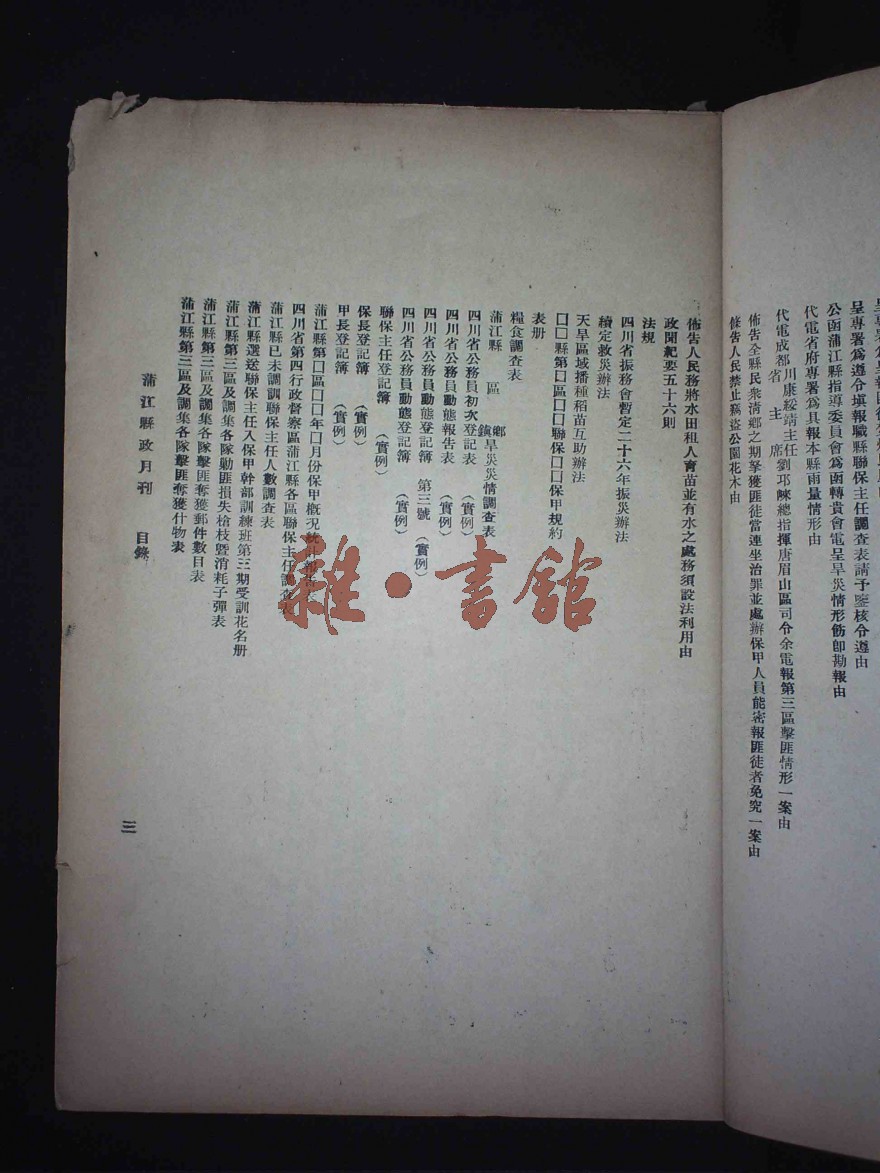 呈專署爲遵令填報職縣聯保主任調查表請予鑒核令遵由
公函蒲江縣指導委員會爲函轉貴會電呈旱災情形飭卽勘報由
代電省府專署爲具報本縣雨量情形由
代電成都省主席劉川康綏靖主任邛崍總指揮唐眉山區司令余電報第三區擊匪情形一案由
佈告全縣民衆清鄉之期拏獲匪徒當連坐治罪並處辦保甲人員能密報匪徒者免究一案由
佈告人民禁止竊盜公園花木由
佈告人民務將水田租人育苗並有水之處務須設法利用由
政聞紀要五十六則
法規
四川省振務會暫定二十六年振災辦法
續定救災辦法
天旱區域播種稻苗互助辦法
□□縣第□區□□聯保□□保甲規約
表册
糧食調查表
蒲江縣 區 鄉鎮旱災災情調查表
四川省公務員初次登記表 (實例)
四川省公務員動態報告表 (實例)
四川省公務員動態登記簿 第三號 (實例)
四川省公務員動態登記簿 (實例)
聯保主任登記簿 (實例)
保長登記簿 (實例)
甲長登記簿 (實例)
蒲江縣第□區□□年□月份保甲概况統計報告
四川省第四行政督察區蒲江縣各區聯保主任調查表
蒲江縣已未調訓聯保主任人數調查表
蒲江縣選送聯保主任入保甲幹部訓練班第三期受訓花名册
蒲江縣第三區及調集各隊勦匪損失槍枝曁消耗子彈表
蒲江縣第三區及調集各隊擊匪奪獲郵件數目表
蒲江縣第三區及調集各隊擊匪奪獲什物表
蒲江縣政月刊 目錄
三
雜·書館